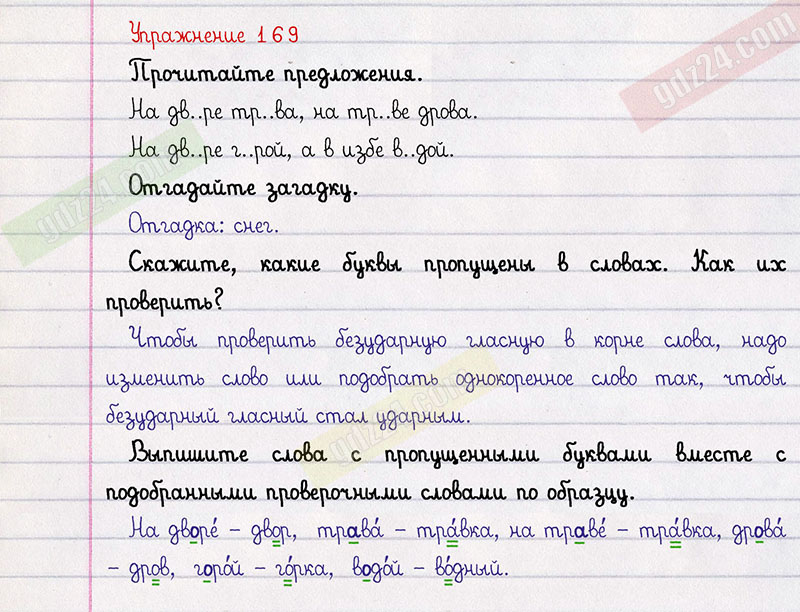 Упражнение 169
Прочитайте предложения.
На дв..ре тр..ва, на тр..ве дрова.
На дв..ре г..рой, а в избе в..дой.
Отгадайте загадку.
Отгадка: снег.
Скажите, какие буквы пропущены в словах. Как их
проверить?
Чтобы проверить безударную гласную в корне слова, надо
изменить слово или подобрать однокоренное слово так, чтобы
безударный гласный стал ударным.
Выпишите слова с пропущенными буквами вместе с
подобранными проверочными словами по образцу.
На дворе́ – двор, трава́ – тра́вка, на траве́ – тра́вка, дрова́
– дров, горо́й – го́рка, водо́й – во́дный.
gdz24.com
gdz24.com
gdz24.com